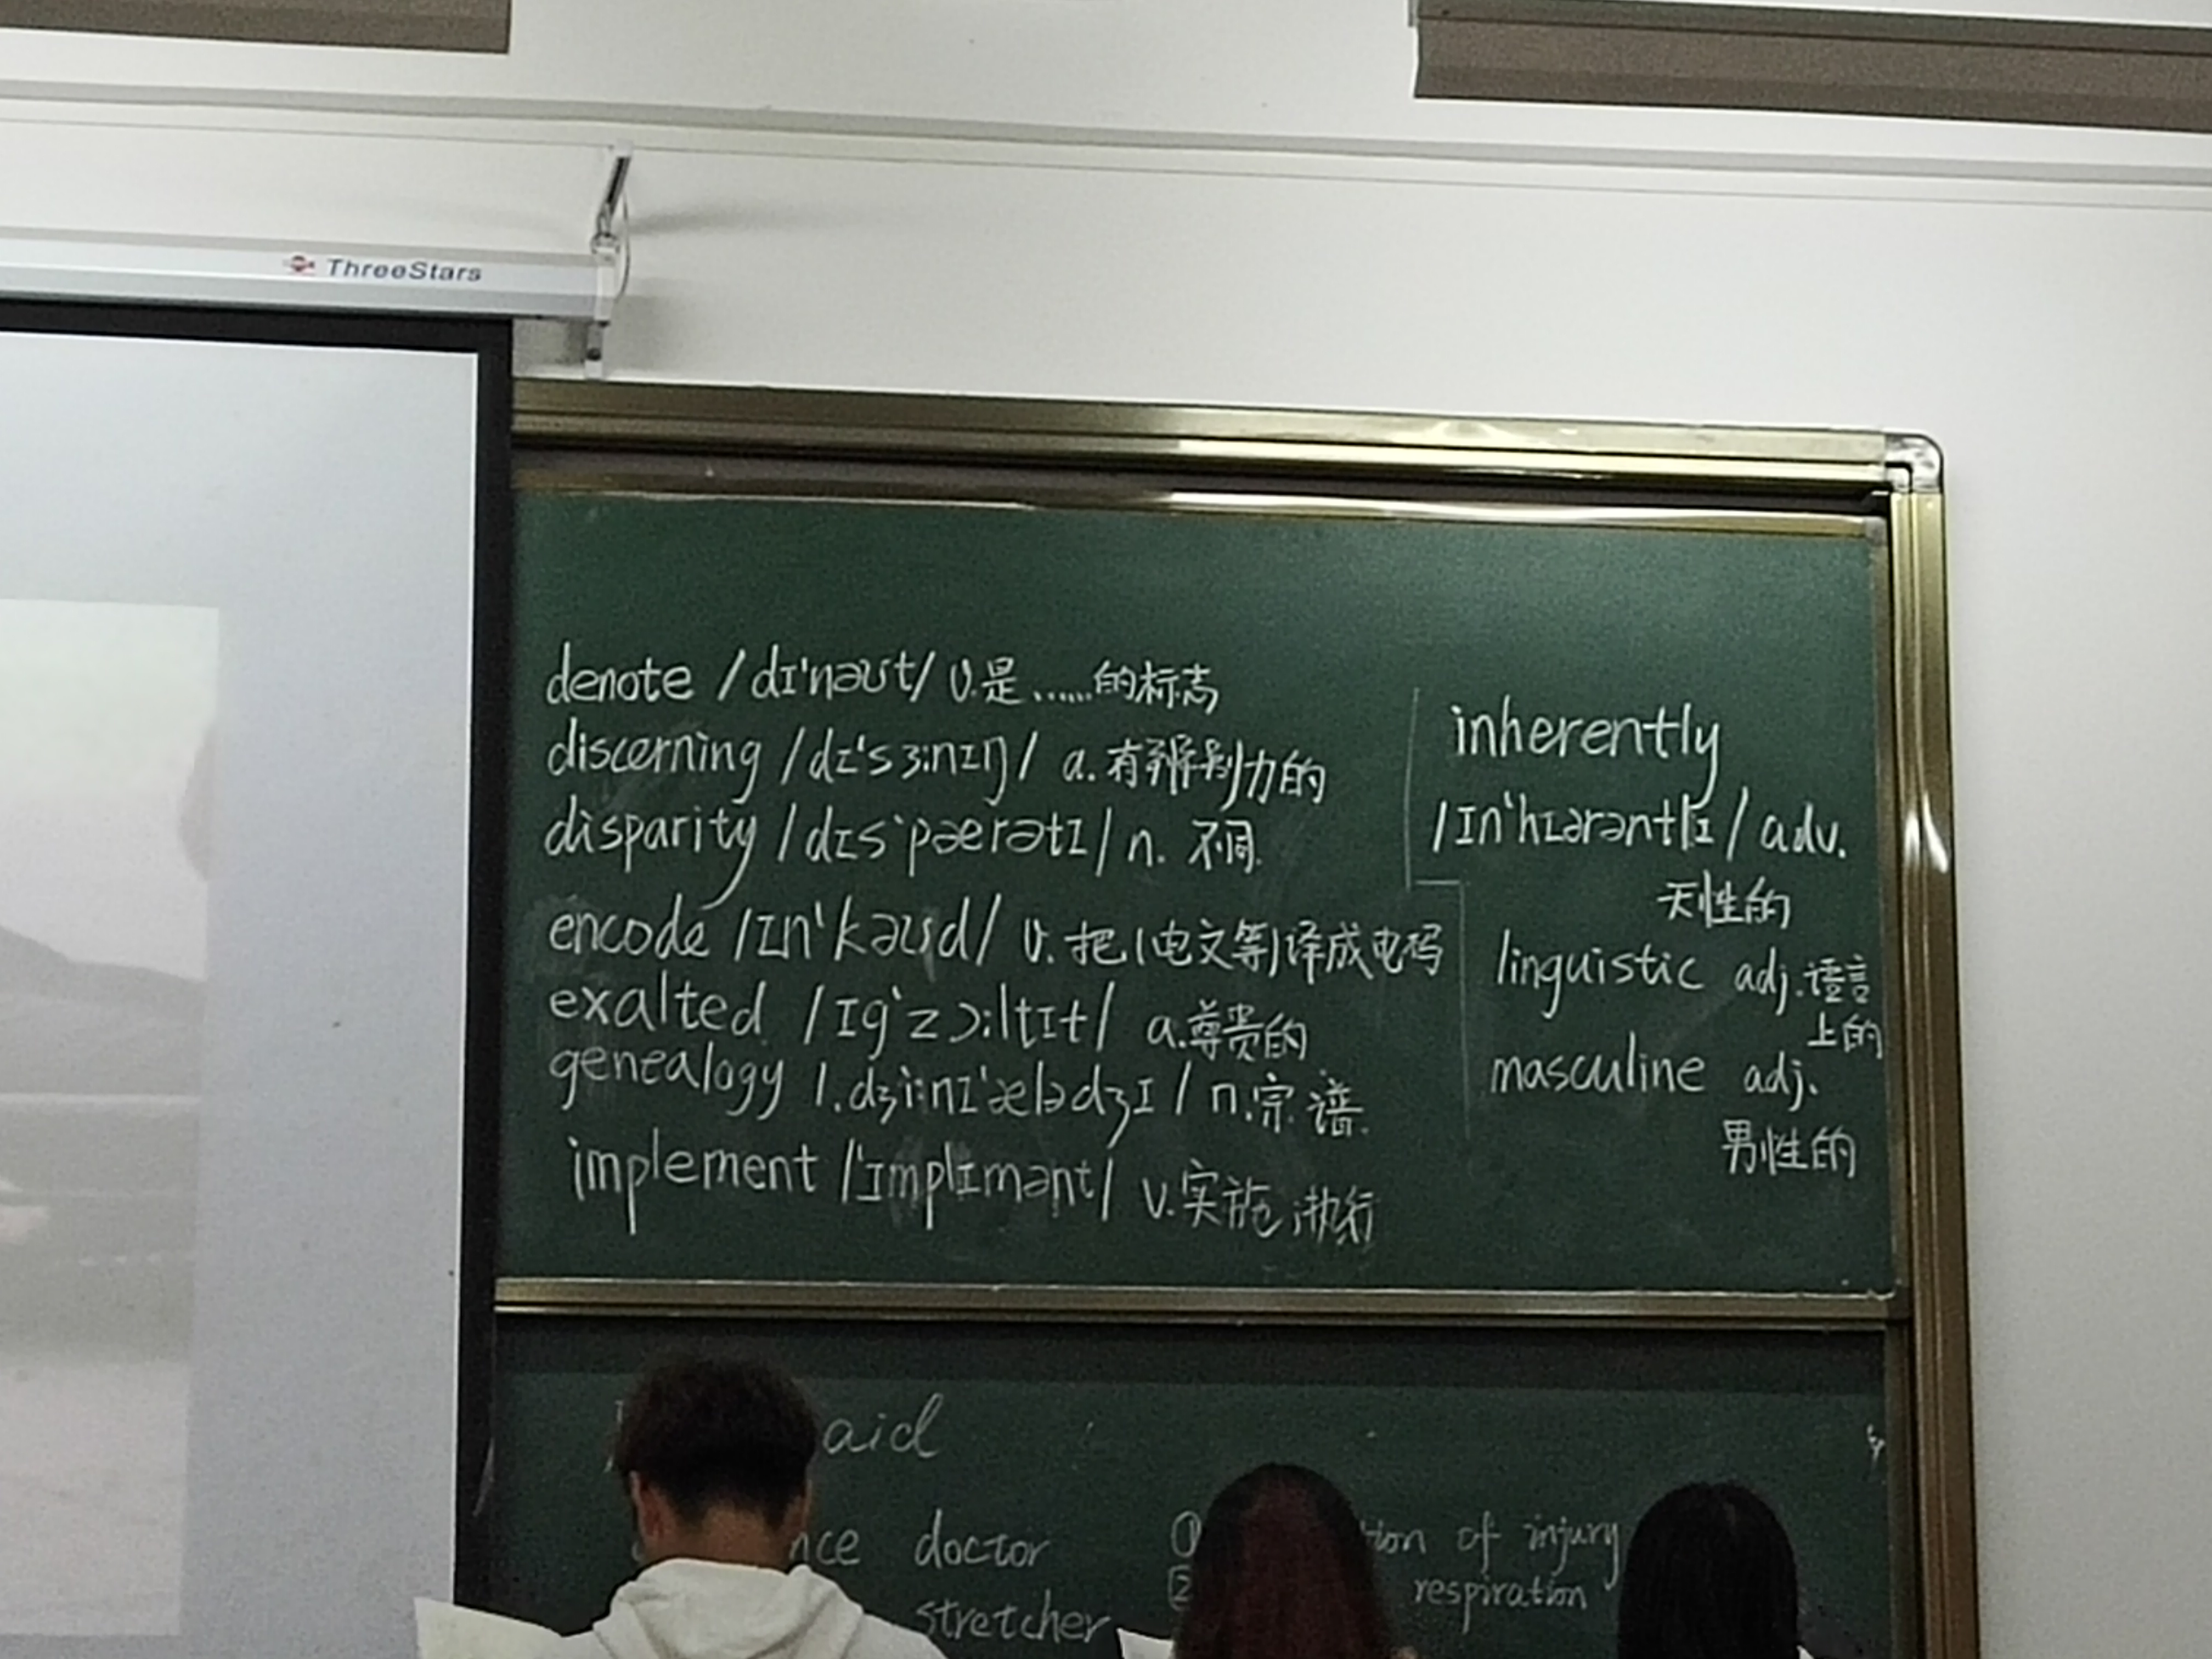 ThreeStars
denote /dɪ'nəʊt/ v.是……的标志
discerning /dɪ'sɜ:nɪŋ/ a.有辨别力的
disparity /dɪs'pærətɪ/ n. 不同.
encode /ɪn'kəʊd/ v.把(电文等)译成电码
exalted /ɪg'zɔ:ltɪt/ a.尊贵的
genealogy /.dʒi:nɪ'ælədʒɪ/ n.宗谱.
implement /'ɪmplɪmənt/ v.实施,执行
inherently
/ɪn'hɪərəntlɪ/ adv.
天性的
linguistic adj.语言
上的
masculine adj.
男性的
aid
doctor
① of injury
② respiration
stretcher